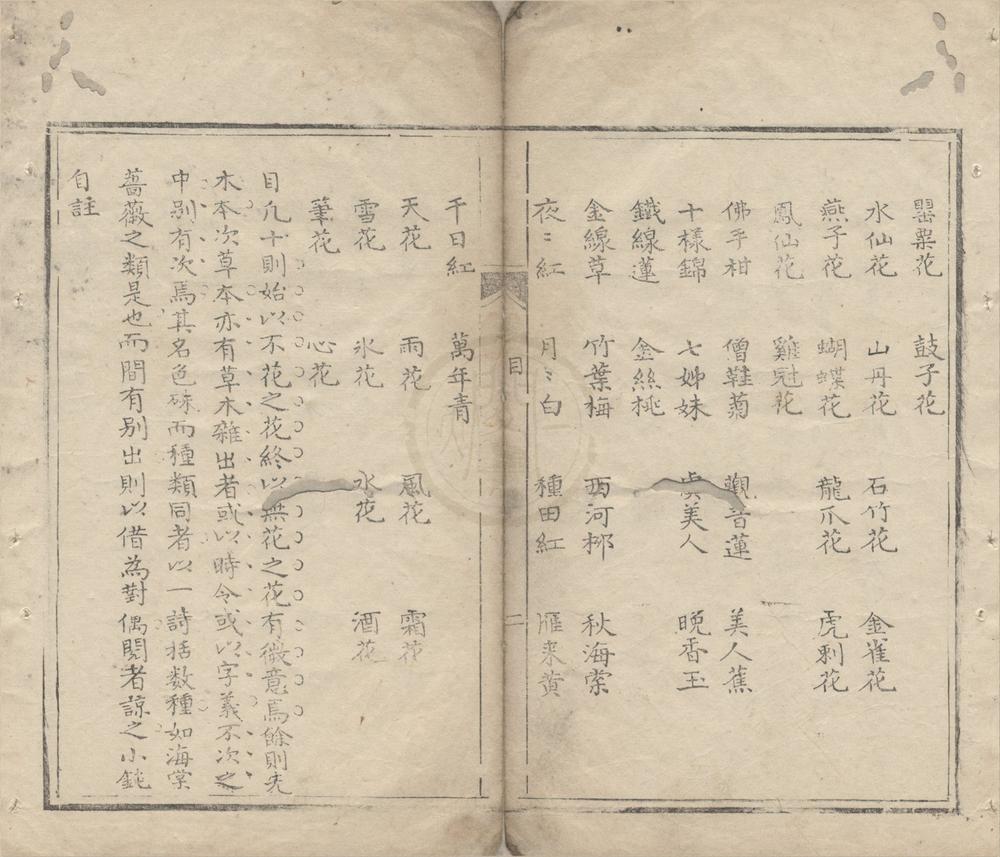 罌粟花 鼓子花
水仙花 山丹花 石竹花 金雀花
燕子花 蝴蝶花 龍爪花 虎刺花
鳳仙花 雞冠花
佛手柑 僧鞋菊 觀音蓮 美人蕉
十樣錦 七姊妹 虞美人 晚香玉
鐵線蓮 金絲桃
金線草 竹葉梅 西河柳 秋海棠
夜〻紅 月〻白 種田紅 雁來黃
目 二
千日紅 萬年青
天花 雨花 風花 霜花
雪花 氷花 水花 酒花
筆花 心花
目凡十則始以不花之花終以無花之花有微意焉餘則先
木本次草本亦有草木雜出者或以時令或以字義不次之
中别有次焉其名色硃而種類同者以一詩括数種如海棠
薔薇之類是也而間有别出則以借為對偶閱者諒之小鈍
自註